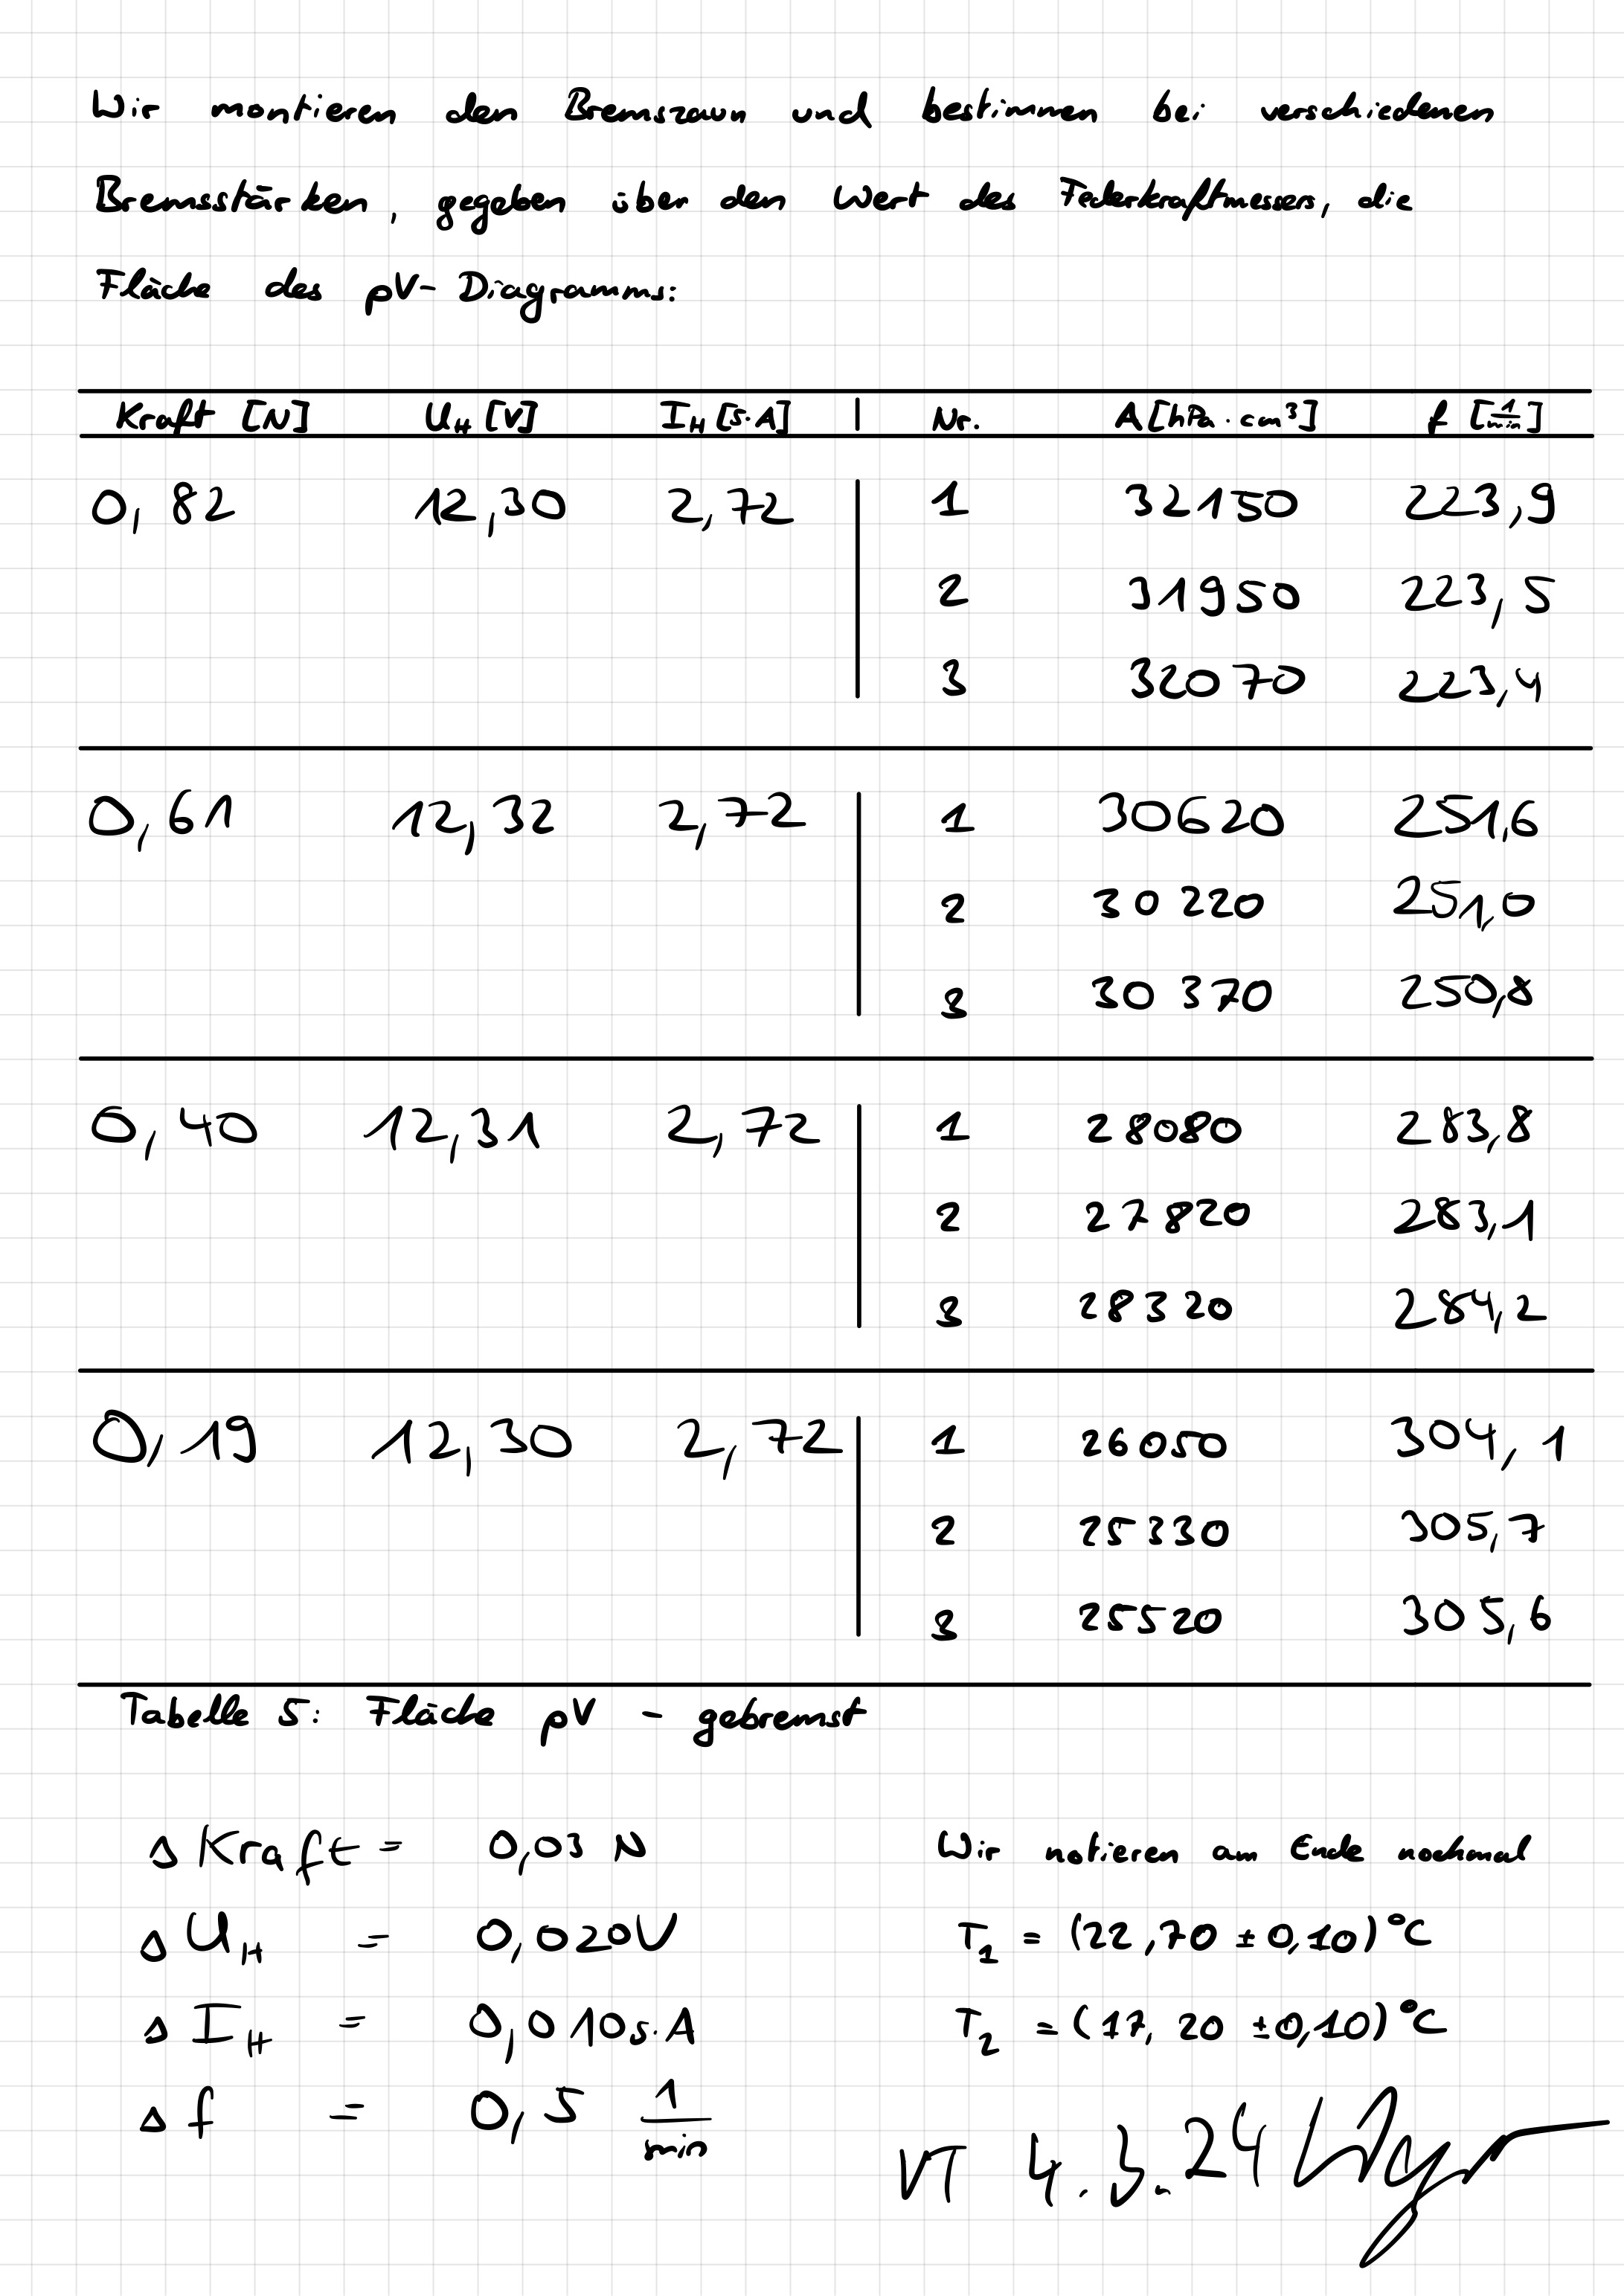 Wir montieren den Bremszaun und bestimmen bei verschiedenen
Bremsstärken, gegeben über den Wert des Federkraftmessers, die
Fläche des pV-Diagramms:
Kraft [N] U_H [V] I_H [5·A] | Nr. A [hPa·cm³] f [1/min]
0,82 12,30 2,72 | 1 32150 223,9
2 31950 223,5
3 32070 223,4
0,61 12,32 2,72 | 1 30620 251,6
2 30220 251,0
3 30370 250,8
0,40 12,31 2,72 | 1 28080 283,8
2 27820 283,1
3 28320 284,2
0,19 12,30 2,72 | 1 26050 304,1
2 25330 305,7
3 25520 305,6
Tabelle 5: Fläche pV - gebremst
Δ Kraft = 0,03 N
Δ U_H = 0,020V
Δ I_H = 0,010 5·A
Δ f = 0,5 1/min
Wir notieren am Ende nochmal
T_1 = (22,70 ± 0,10) °C
T_2 = (17,20 ± 0,10) °C
VT 4.3.24